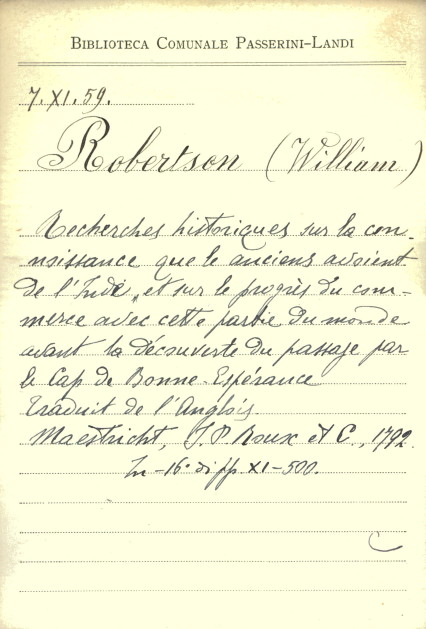 BIBLIOTECA COMUNALE PASSERINI-LANDI
7.XI.59.
Robertson (William)
Recherches historiques sur la con-
noissance que le anciens avoient
de l'Inde, et sur le progrès du com-
merce avec cette partie du monde
avant la découverte du passage par
le Cap de Bonne-Espérance
Traduit de l'Anglois.
Maestricht, J.P. Roux et C., 1792.
In-16° di pp. XI-500.